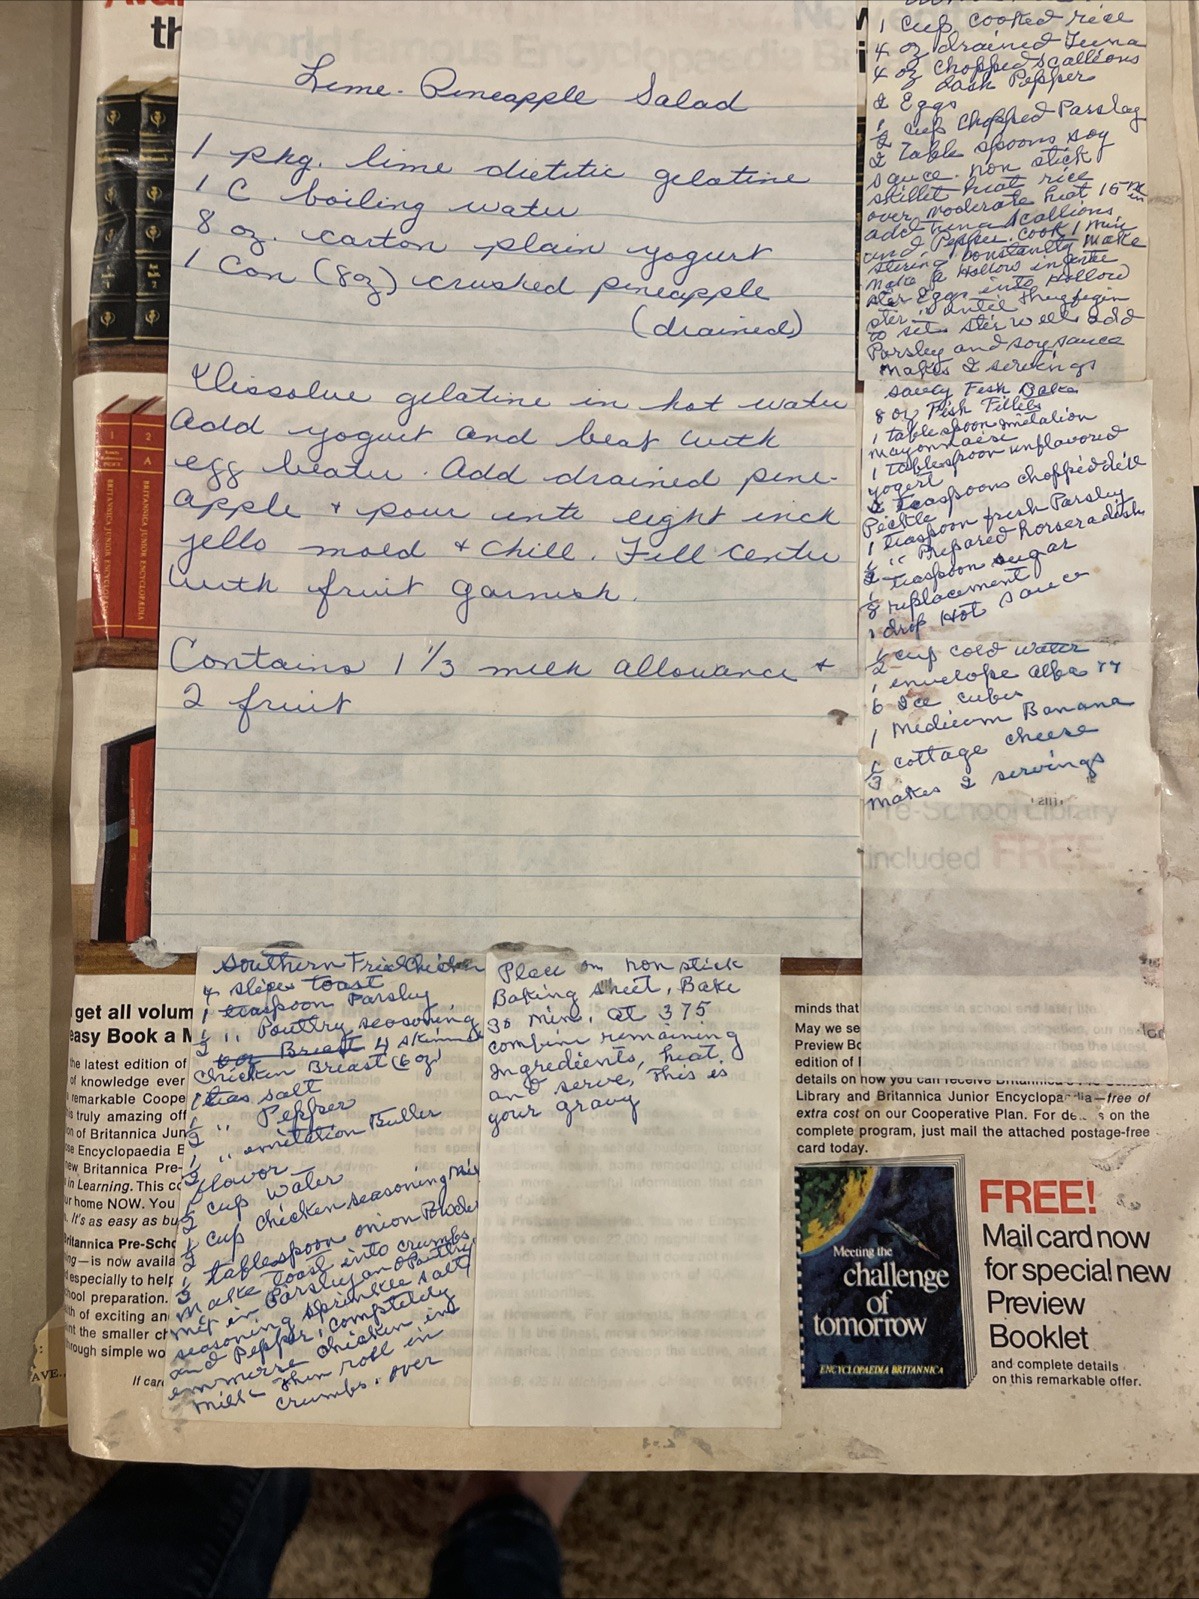 Lime-Pineapple Salad
1 pkg. lime dietetic gelatine
1 C boiling water
8 oz. carton plain yogurt
1 can (8oz) crushed pineapple
(drained)
Dissolve gelatine in hot water
Add yogurt and beat with
egg beater. Add drained pine-
apple + pour into eight inch
jello mold + chill. Fill center
with fruit garnish.
Contains 1 1/3 milk allowance +
2 fruit
1 cup cooked rice
4 oz drained Tuna
4 oz chopped scallions
dash Pepper
2 Eggs
1/2 cup chopped Parsley
2 Table spoons soy
sauce. non stick
skillet heat rice
over moderate heat 15 min
add tuna scallions
and Pepper. cook 1 min
stiring constantly make
make a Hollow in
ster Eggs into Hollow
ster until they begin
to set ster well add
Parsley and soy sauce
makes 2 servings
saucy Fish Bake
8 oz Fish Fillets
1 tablespoon imetation
mayonnaise
1 tablespoon unflavored
yogert
2 teaspoons chopped dill
Pickle
1 teaspoon fresh Parsley
1/2 " Prepared horseradish
1/8 teaspoon sugar
replacement
1 drop Hot sauce
1/2 cup cold water
1 envelope Alba 77
6 Ice cubes
1 medium Banana
1/3 C cottage cheese
makes 2 servings
Southern Fried Chicken
4 slices toast
1 teaspoon Parsley
1/2 " Poultry seasoning
6 oz Breast 4 skinned
chicken Breast (6 oz)
1 teas salt
1/2 " Pepper
1/2 " emitation Butter
flavor
1/2 cup water
1/2 cup chicken seasoning mix
1/3 tablespoon onion Powder
make toast into crumbs
mix in Parsley and Poultry
seasoning sprinkle salt
and Pepper, completely
emmerse chicken in
milk then roll in
crumbs. over
Place on non stick
Baking sheet, Bake
30 min. at 375
combine remaining
Ingredients, heat
and serve, This is
your gravy
BRITANNICA JUNIOR ENCYCLOPÆDIA
Pre-School Library
included FREE.
get all volum
easy Book a M
the latest edition of
of knowledge ever
remarkable Coope
is truly amazing off
on of Britannica Jun
se Encyclopaedia B
new Britannica Pre-
in Learning. This co
ur home NOW. You
It's as easy as bu
Britannica Pre-Scho
ng—is now availa
d especially to help
hool preparation.
th of exciting an
nt the smaller ch
rough simple wo
If care
AVE.
minds that
May we se
Preview Bo
edition of
details on how you can receive Britannica's Pre-School
Library and Britannica Junior Encyclopaedia—free of
extra cost on our Cooperative Plan. For details on the
complete program, just mail the attached postage-free
card today.
Meeting the
challenge
of
tomorrow
ENCYCLOPAEDIA BRITANNICA
FREE!
Mail card now
for special new
Preview
Booklet
and complete details
on this remarkable offer.